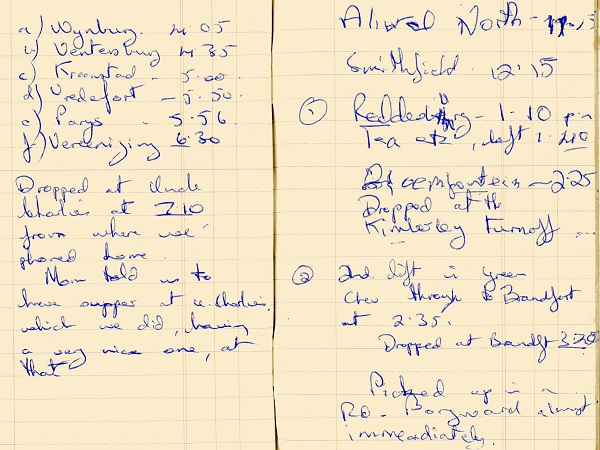 a) Wynburg. 4.05
b) Ventersburg 4.35
c) Kroonstad - 5.00.
d) Vredefort - 5.30.
e) Parys - 5.56.
f) Vereeniging 6.30
Dropped at Uncle
Charlies at 7.10
from where we
phoned home.
Mom told us to
have supper at u. Charlies,
which we did, having
a very nice one, at
that
Aliwal North -
Smithfield. 12.15
① Reddersburg - 1.10 pm
Tea etc, left 1.40
Bloemfontein - 2.25
Dropped at the
Kimberley Turnoff ...
② 2nd lift in green
Chev through to Brandfort
at 2.35.
Dropped at Brandft 3.20
Picked up in a
Borgward almost
immediately.